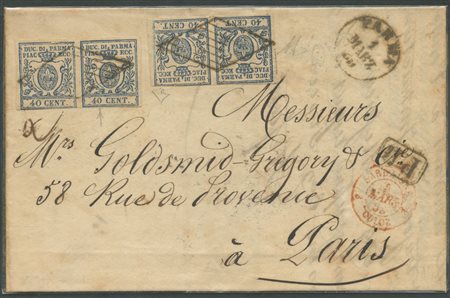 DUC. DI PARMA
PIAC. ECC.
40 CENT.
DUC. DI PARMA
PIAC. ECC.
40 CENT.
40 CENT
DUC. DI PARMA
PIAC. ECC.
40 CENT
DUC. DI PARMA
PIAC. ECC.
PARMA
Messieurs
Mrs Goldsmid-Grigory &
58 Rue de Provenie
à Paris